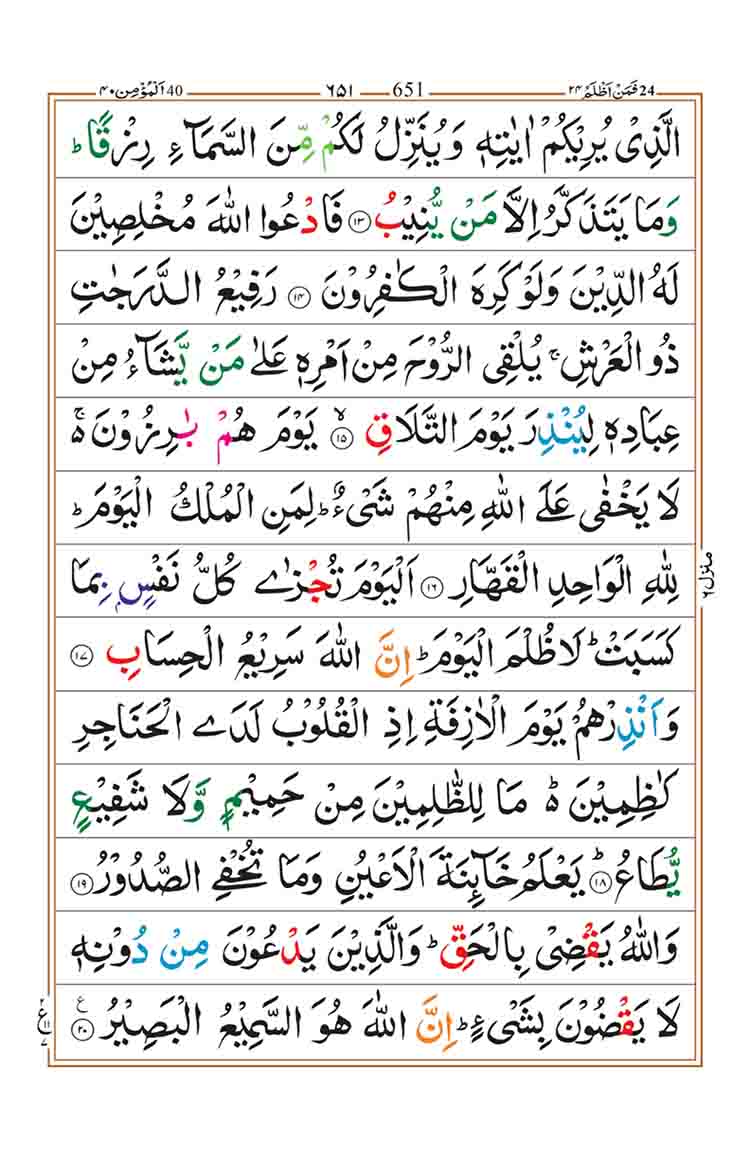 24 فَمَنْ اَظْلَمُ ۲۴ 651 ۶۵۱ 40 اَلْمُؤْمِن ۴۰
الَّذِیْ یُرِیْكُمْ اٰیٰتِهٖ وَیُنَزِّلُ لَكُمْ مِّنَ السَّمَآءِ رِزْقًا ؕ
وَمَا یَتَذَكَّرُ اِلَّا مَنْ یُّنِیْبُ ۝۱۳ فَادْعُوا اللّٰهَ مُخْلِصِیْنَ
لَهُ الدِّیْنَ وَلَوْ كَرِهَ الْكٰفِرُوْنَ ۝۱۴ رَفِیْعُ الدَّرَجٰتِ
ذُو الْعَرْشِ ۚ یُلْقِی الرُّوْحَ مِنْ اَمْرِهٖ عَلٰی مَنْ یَّشَآءُ مِنْ
عِبَادِهٖ لِیُنْذِرَ یَوْمَ التَّلَاقِ ۝۱۵ۙ یَوْمَ هُمْ بٰرِزُوْنَ ۚ۬
لَا یَخْفٰی عَلَی اللّٰهِ مِنْهُمْ شَیْءٌ ؕ لِمَنِ الْمُلْكُ الْیَوْمَ ؕ
لِلّٰهِ الْوَاحِدِ الْقَهَّارِ ۝۱۶ اَلْیَوْمَ تُجْزٰی كُلُّ نَفْسٍۭ بِمَا
منزل ۶
كَسَبَتْ ؕ لَا ظُلْمَ الْیَوْمَ ؕ اِنَّ اللّٰهَ سَرِیْعُ الْحِسَابِ ۝۱۷
وَاَنْذِرْهُمْ یَوْمَ الْاٰزِفَةِ اِذِ الْقُلُوْبُ لَدَی الْحَنَاجِرِ
كٰظِمِیْنَ ؕ۬ مَا لِلظّٰلِمِیْنَ مِنْ حَمِیْمٍ وَّلَا شَفِیْعٍ
یُّطَاعُ ۝۱۸ؕ یَعْلَمُ خَآىِٕنَةَ الْاَعْیُنِ وَمَا تُخْفِی الصُّدُوْرُ ۝۱۹
وَاللّٰهُ یَقْضِیْ بِالْحَقِّ ؕ وَالَّذِیْنَ یَدْعُوْنَ مِنْ دُوْنِهٖ
لَا یَقْضُوْنَ بِشَیْءٍ ؕ اِنَّ اللّٰهَ هُوَ السَّمِیْعُ الْبَصِیْرُ ۝۲۰ ع